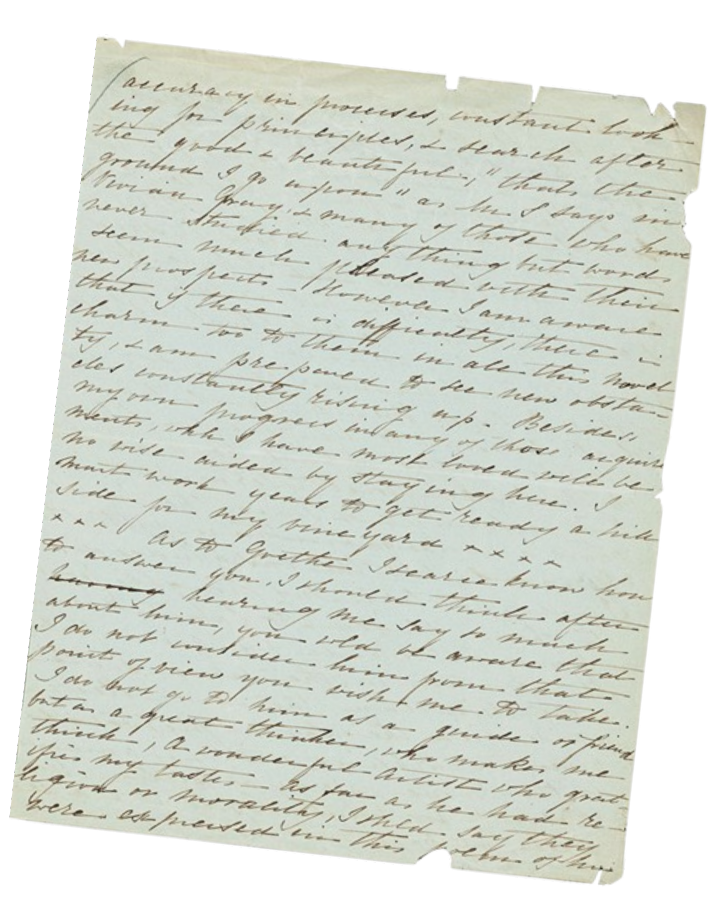 accuracy in processes, constant look-
ing for principles, & search after
the good & beautiful, "that's the
ground I go upon" as Mr S says in
Vivian Grey, & many of those who have
never studied anything but words
seem much pleased with their
new prospects - However I am aware
that if there is difficulty, there is
charm too to them in all this novel-
ty, & am prepared to see new obsta-
cles constantly rising up. Besides,
my own progress in any of those acquire-
ments, whh I have most loved will be
no wise aided by staying here. I
must work years to get ready a hill
side for my vineyard x x x x
x x x As to Goethe I scarce know how
to answer you. I should think after
hearing me say so much
about him, you wld be aware that
I do not consider him from that
point of view you wish me to take.
I do not go to him as a guide or friend
but as a great thinker, who makes me
think, a wonderful artist who grat-
ifies my tastes - as far as he had re-
ligion or morality, I shld say they
were expressed in this poem of his